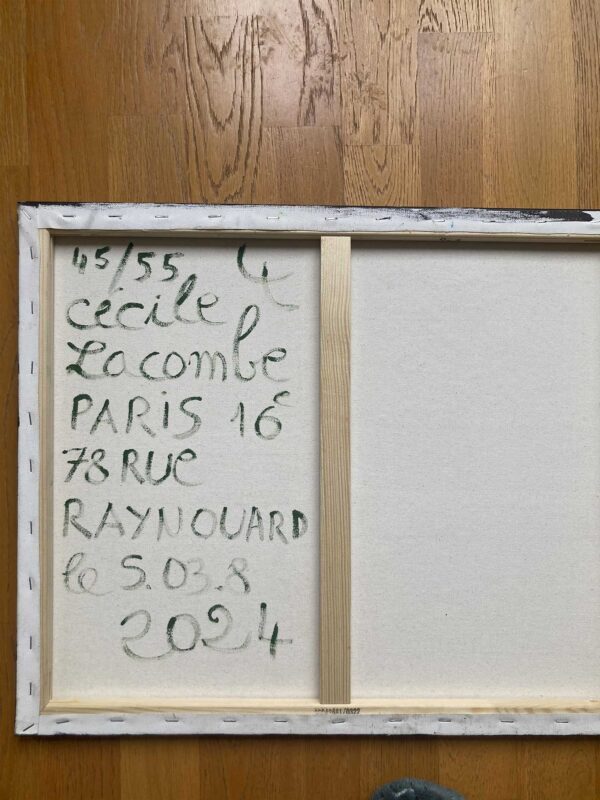 45/55 4
cécile
Lacombe
PARIS 16e
78 RUE
RAYNOUARD
le 5.03.8
2024